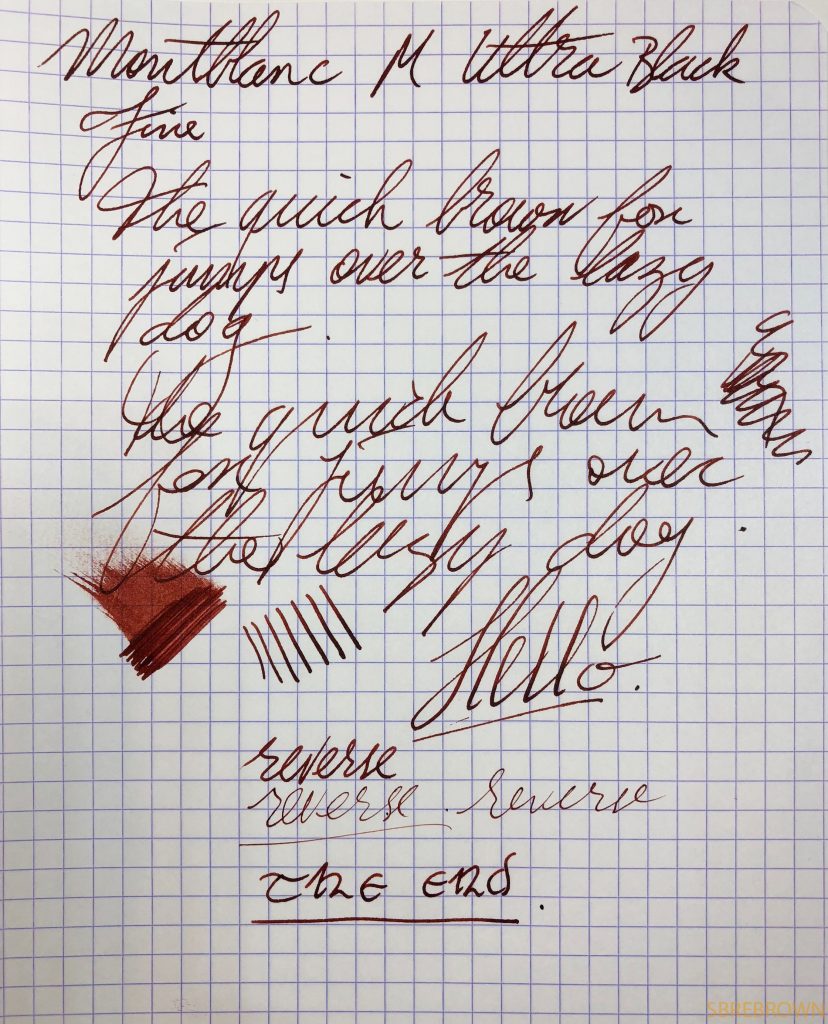 Montblanc M Ultra Black
fine
The quick brown fox
jumps over the lazy
dog.
the quick brown
fox jumps over
the lazy dog.
Hello.
reverse
reverse. reverse
THE END.
SBREBROWN